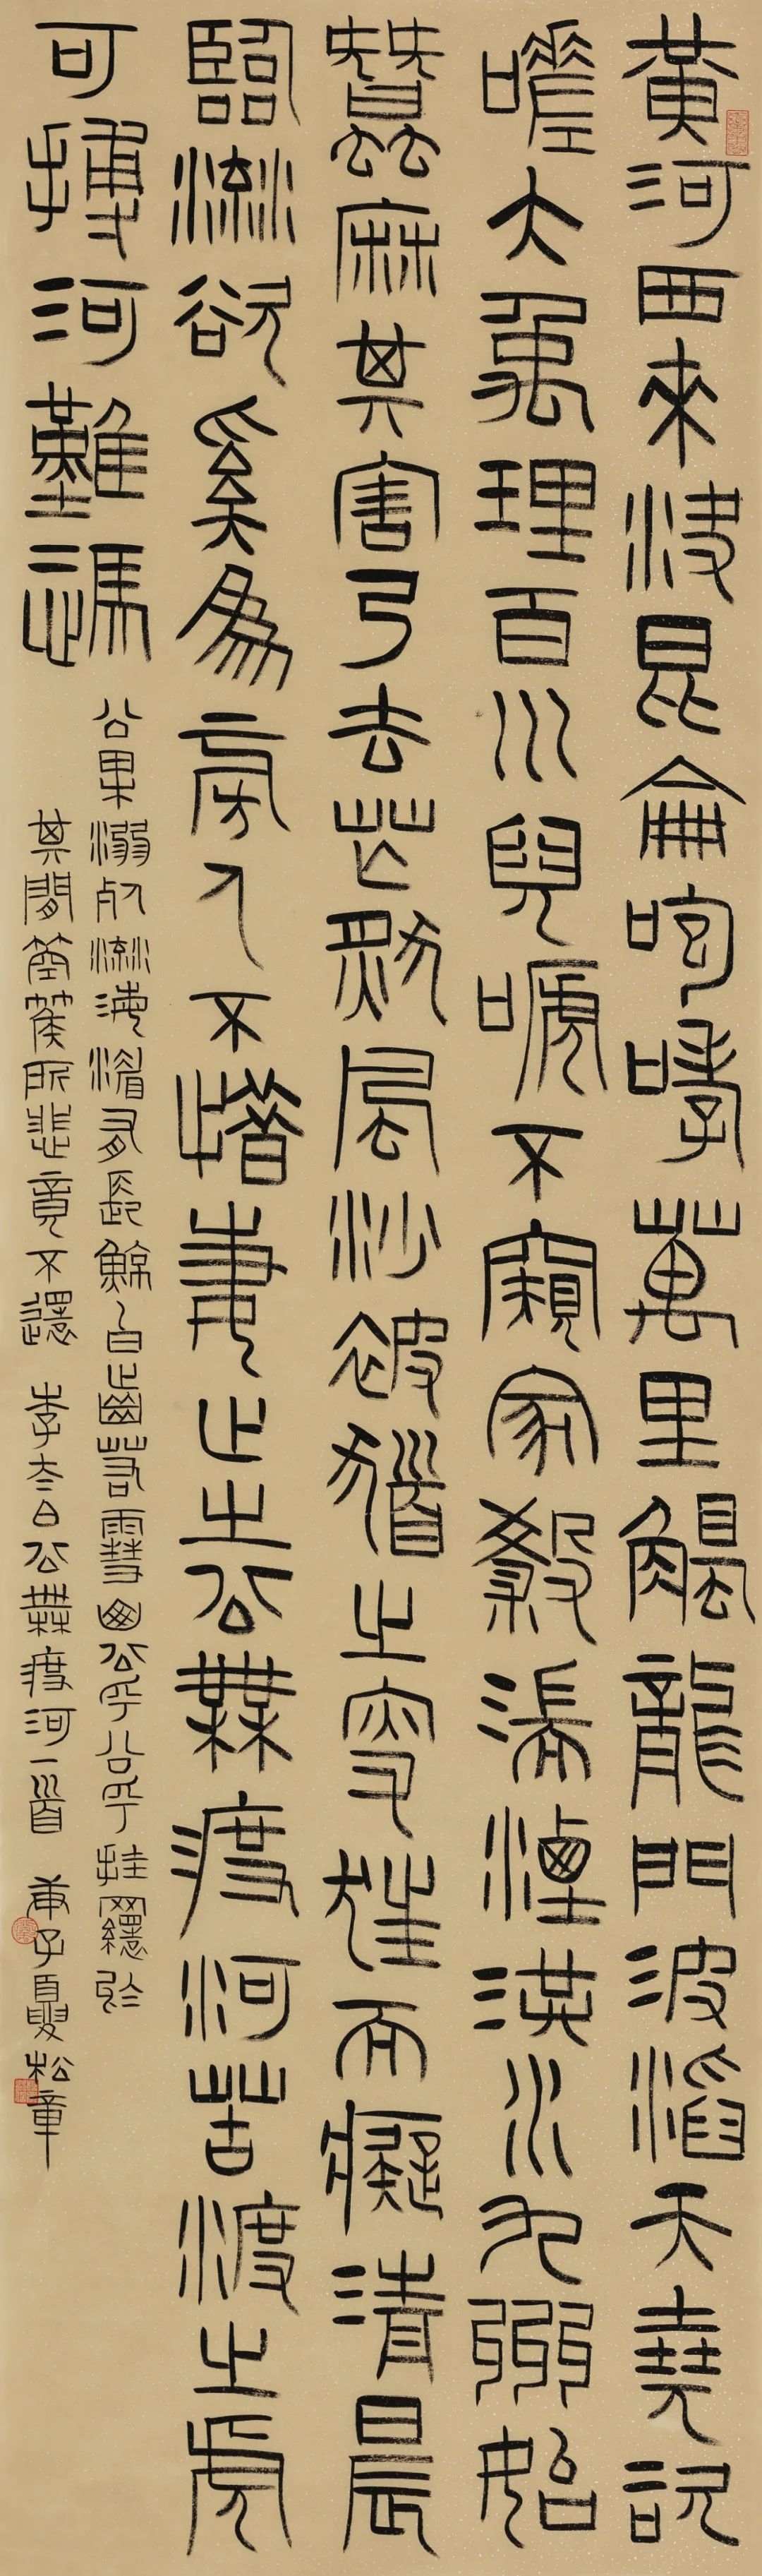 黃河西來決昆侖咆哮萬里觸龍門波滔天堯咨
嗟大禹理百川兒啼不窺家殺湍湮洪水九州始
蠶麻其害乃去茫然風沙被髮之叟狂而癡清晨
臨流欲奚為旁人不惜妻止之公無渡河苦渡之虎
可搏河難憑
公果溺死流海湄有長鯨白齒若雪山公乎公乎挂罥於
其間箜篌所悲竟不還 李太白公無渡河一首 庚子夏松章